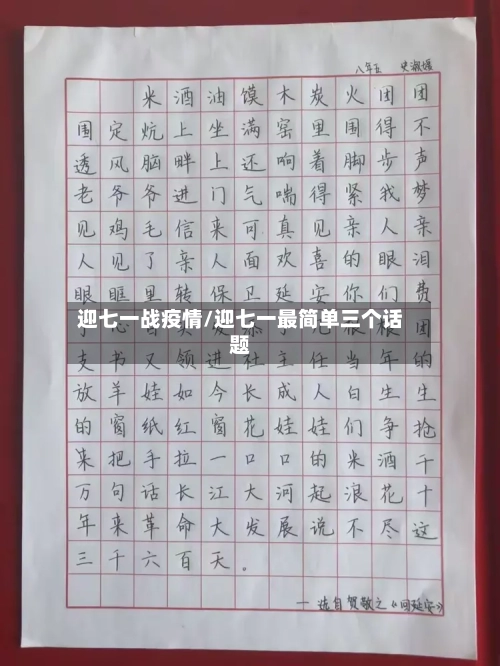 八年五 史淑媛
米酒油馍木炭火团团
围定炕上坐满窑里围得不
透风脑畔上还响着脚步声
老爷爷进门气喘得紧我梦
见鸡毛信来可真见亲人亲
人见了亲人面欢喜的眼泪
眼眶里转保卫延安你们费
迎七一战疫情/迎七一最简单三个话
题
支书又领进社主任当年的
放羊娃如今长成人白生生
的窗纸红窗花娃娃们争抢
来把手拉一口口的米酒千
万句话长江大河起浪花十
年来革命大发展说不尽这
三千六百天。
— 选自贺敬之《回延安》